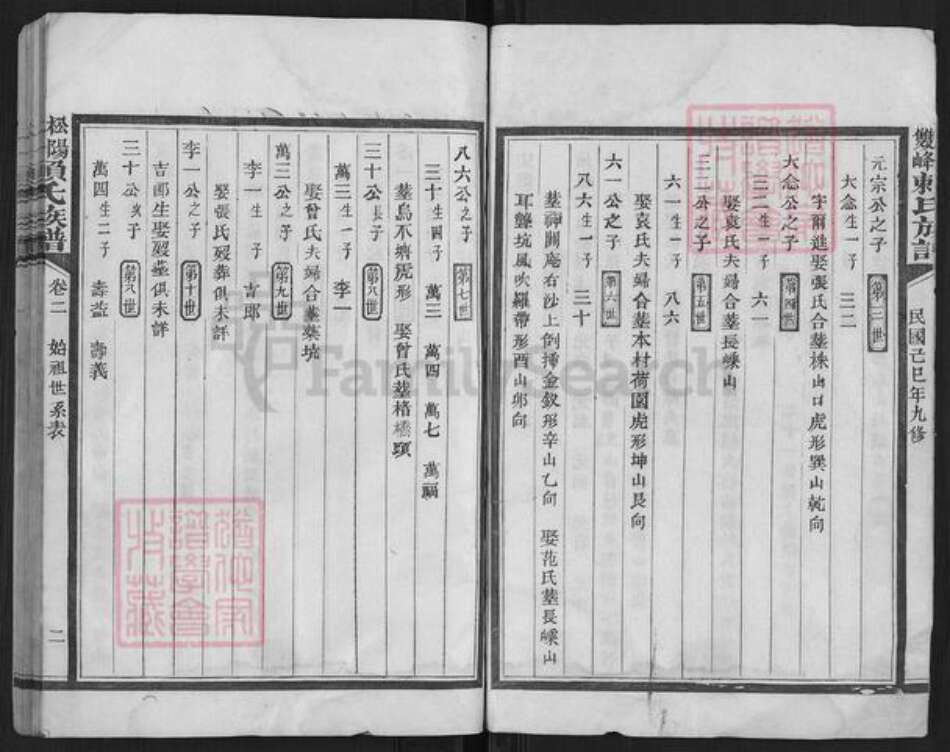 雙峰賴氏族譜
民國己巳年九修
元宗公之子 第三世
大念生一子 三二
大念公之子 第四世
字爾進娶張氏合墓株山口虎形巽山乾向
三二生一子 六一
三二公之子 第五世
娶袁氏夫婦合墓長嵊山
六一生一子 八六
娶袁氏夫婦合墓本村荷園虎形坤山艮向
六一公之子 第六世
八六生一子 三十
墓神關庵右沙上倒揷金釵形辛山乙向 娶范氏墓長嵊山
耳聾坑風吹羅帶形酉山卯向
八六公之子 第七世
三十生四子 萬三 萬四 萬七 萬福
墓烏不擠泥形 娶曾氏墓楮橋頭
三十公長子 第八世
萬三生一子 李一
娶曾氏夫婦合墓葉坑
萬三公之子 第九世
李一生子 吉郎
娶張氏歿葬俱未詳
李一公之子 第十世
吉郎生娶歿墓俱未詳
三十公次子 第八世
萬四生二子 壽益 壽義
松陽賴氏族譜
卷二 始祖世系表
二
FamilySearch